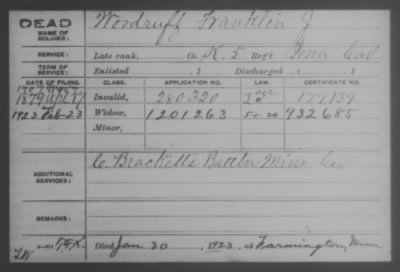 DEAD Woodruff Franklin J
NAME OF SOLDIER:
SERVICE: Late rank, Co. K, 5 Reg't Iowa Cav
TERM OF SERVICE: Enlisted 1 Discharged 1
DATE OF FILING. CLASS. APPLICATION NO. LAW. CERTIFICATE NO.
1879 Apl 17 Invalid, 280320 177139
1923 Feb-23 Widow, 1201263 5-1-20 932685
Minor,
ADDITIONAL SERVICES: C. Bracketts Battln Minn Cav
REMARKS:
Died Jan 30, 1923, at Farmington, Minn